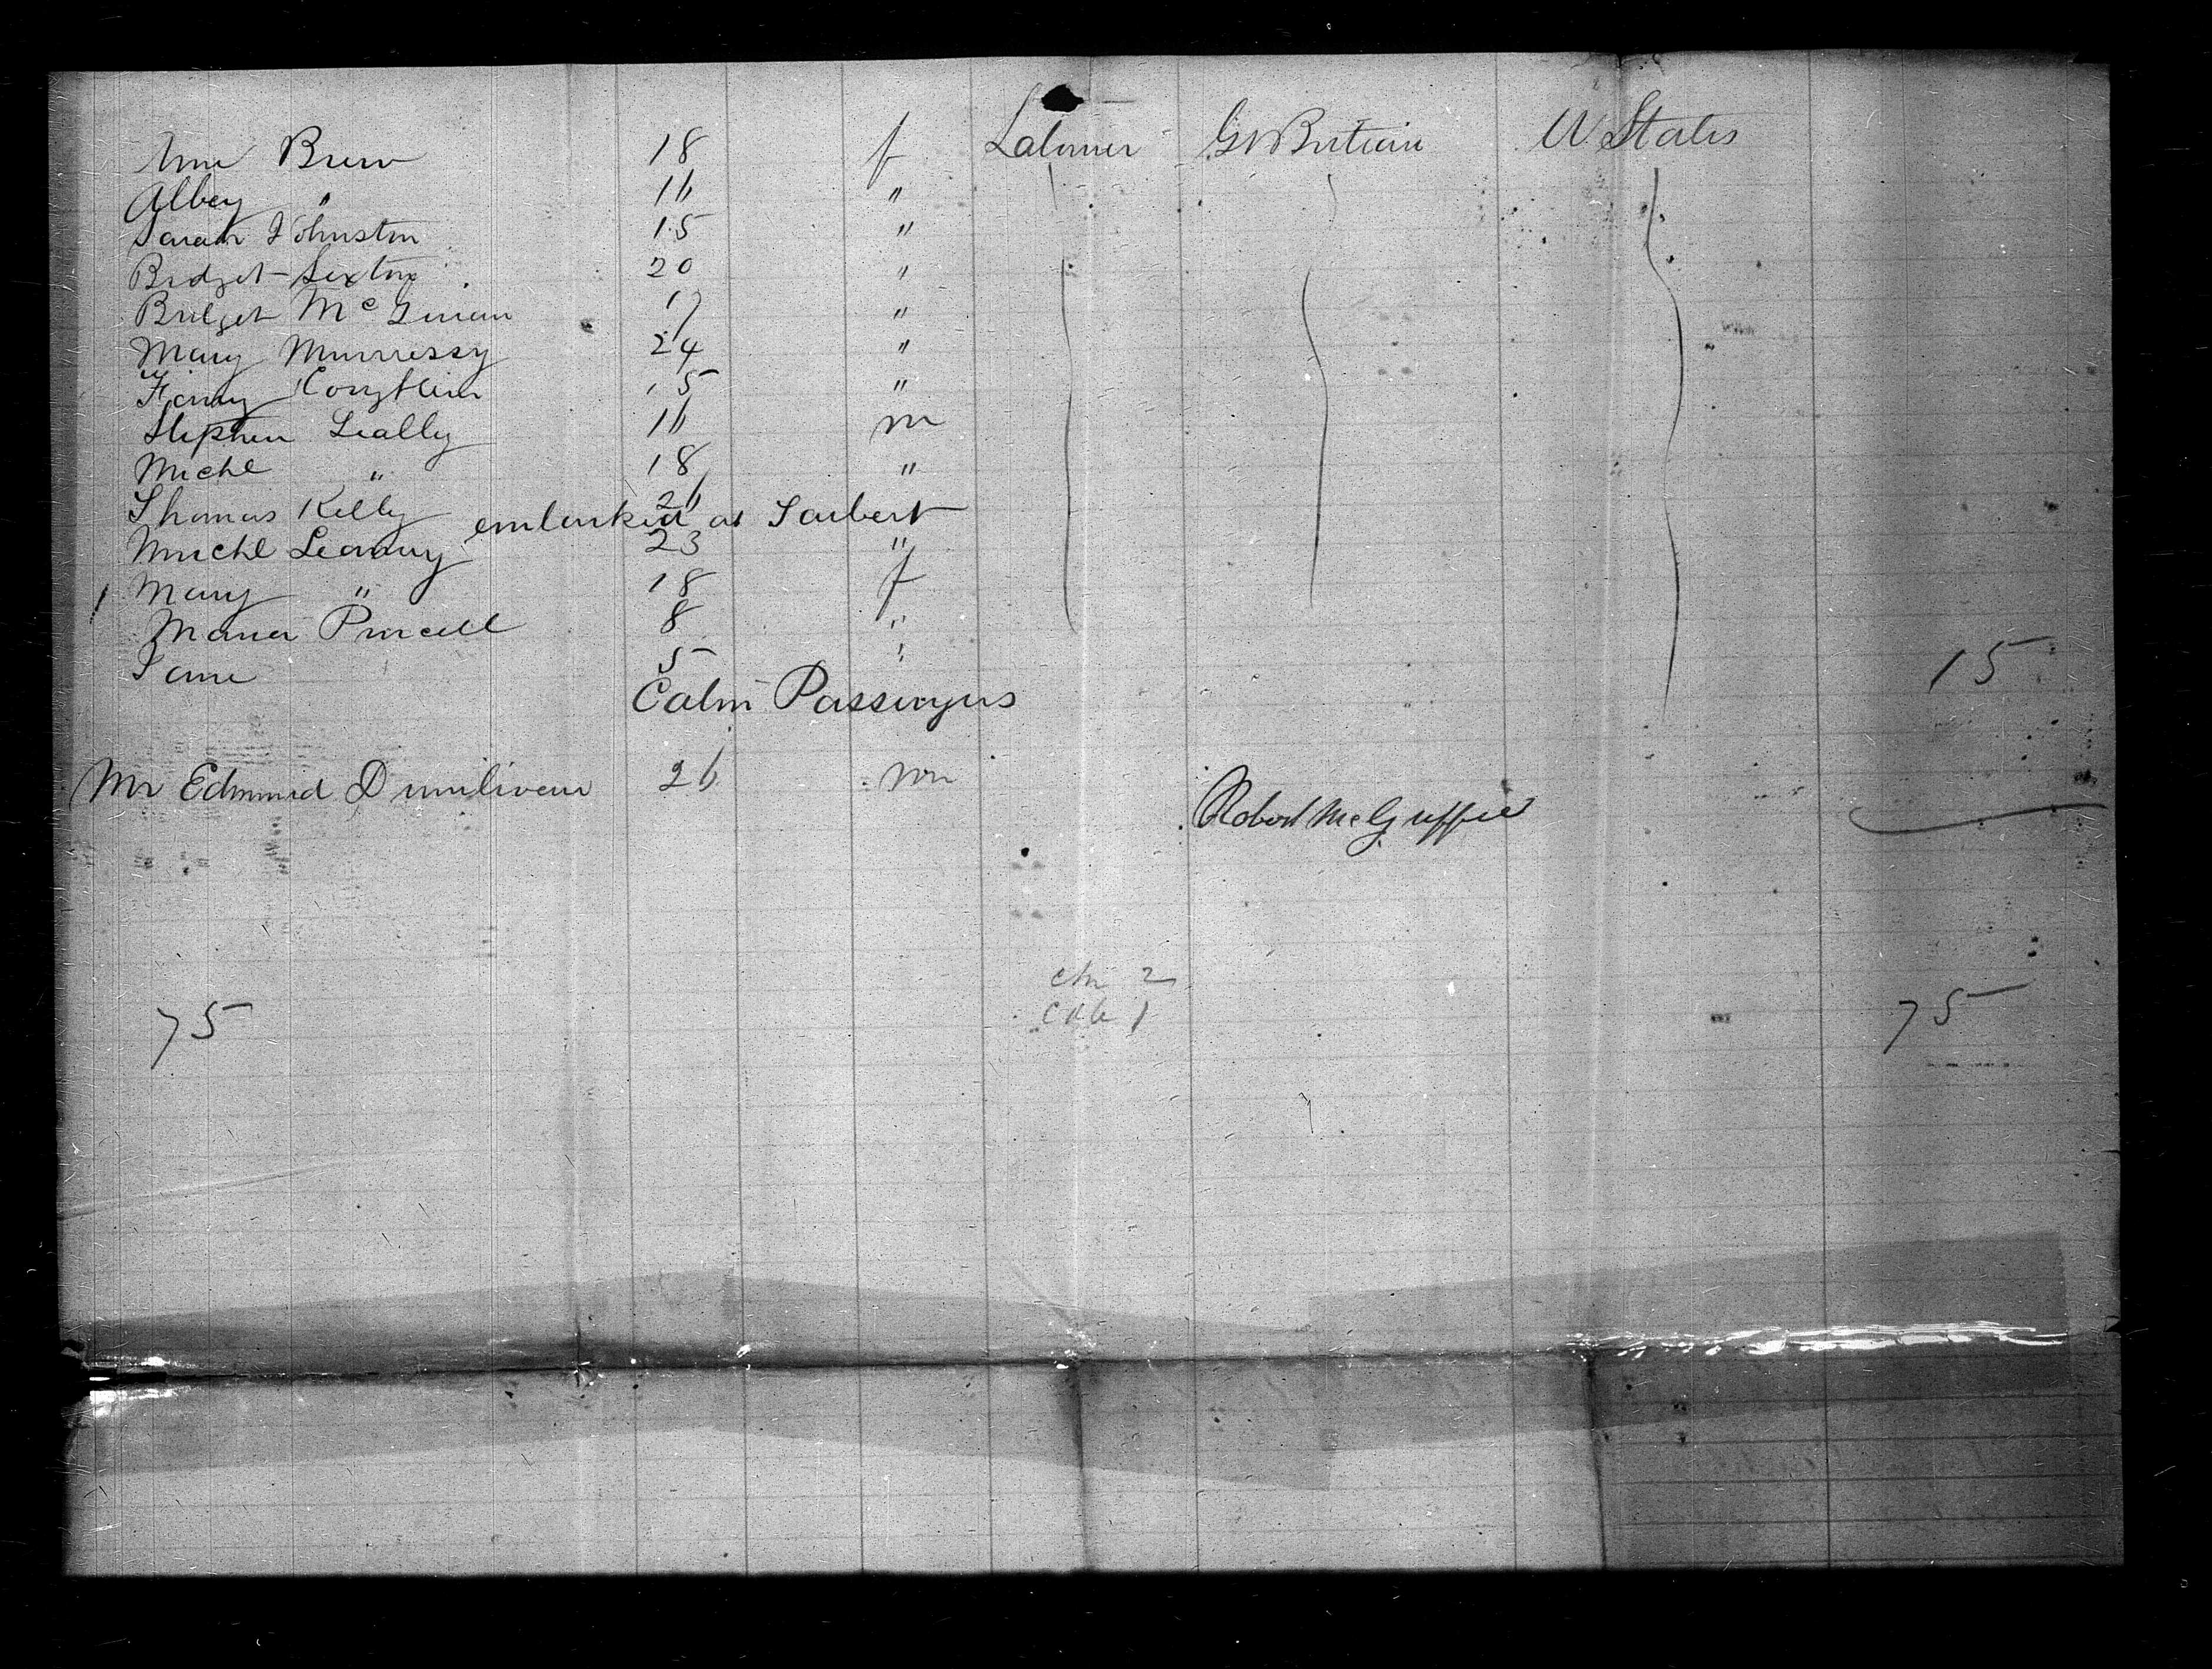 Ann Brew 18 f Laborer Gt Britain U States
Abbey " 16 "
Sarah Johnston 15 "
Bridget Sexton 20 "
Bridget McGinan 17 "
Mary Murressy 24 "
Fanny 15 "
Stephen Leally 16 m
Michl " 18 "
Thomas Kelly 26
embarked at Tarbert
Michl Leamy 23 "
1 Mary " 18 f
Maria Purcell 8 "
Jane 5 " 15
Cabin Passengers
Mr Edmund 26 m
Robert McGuffie
ch 2
75 1 75